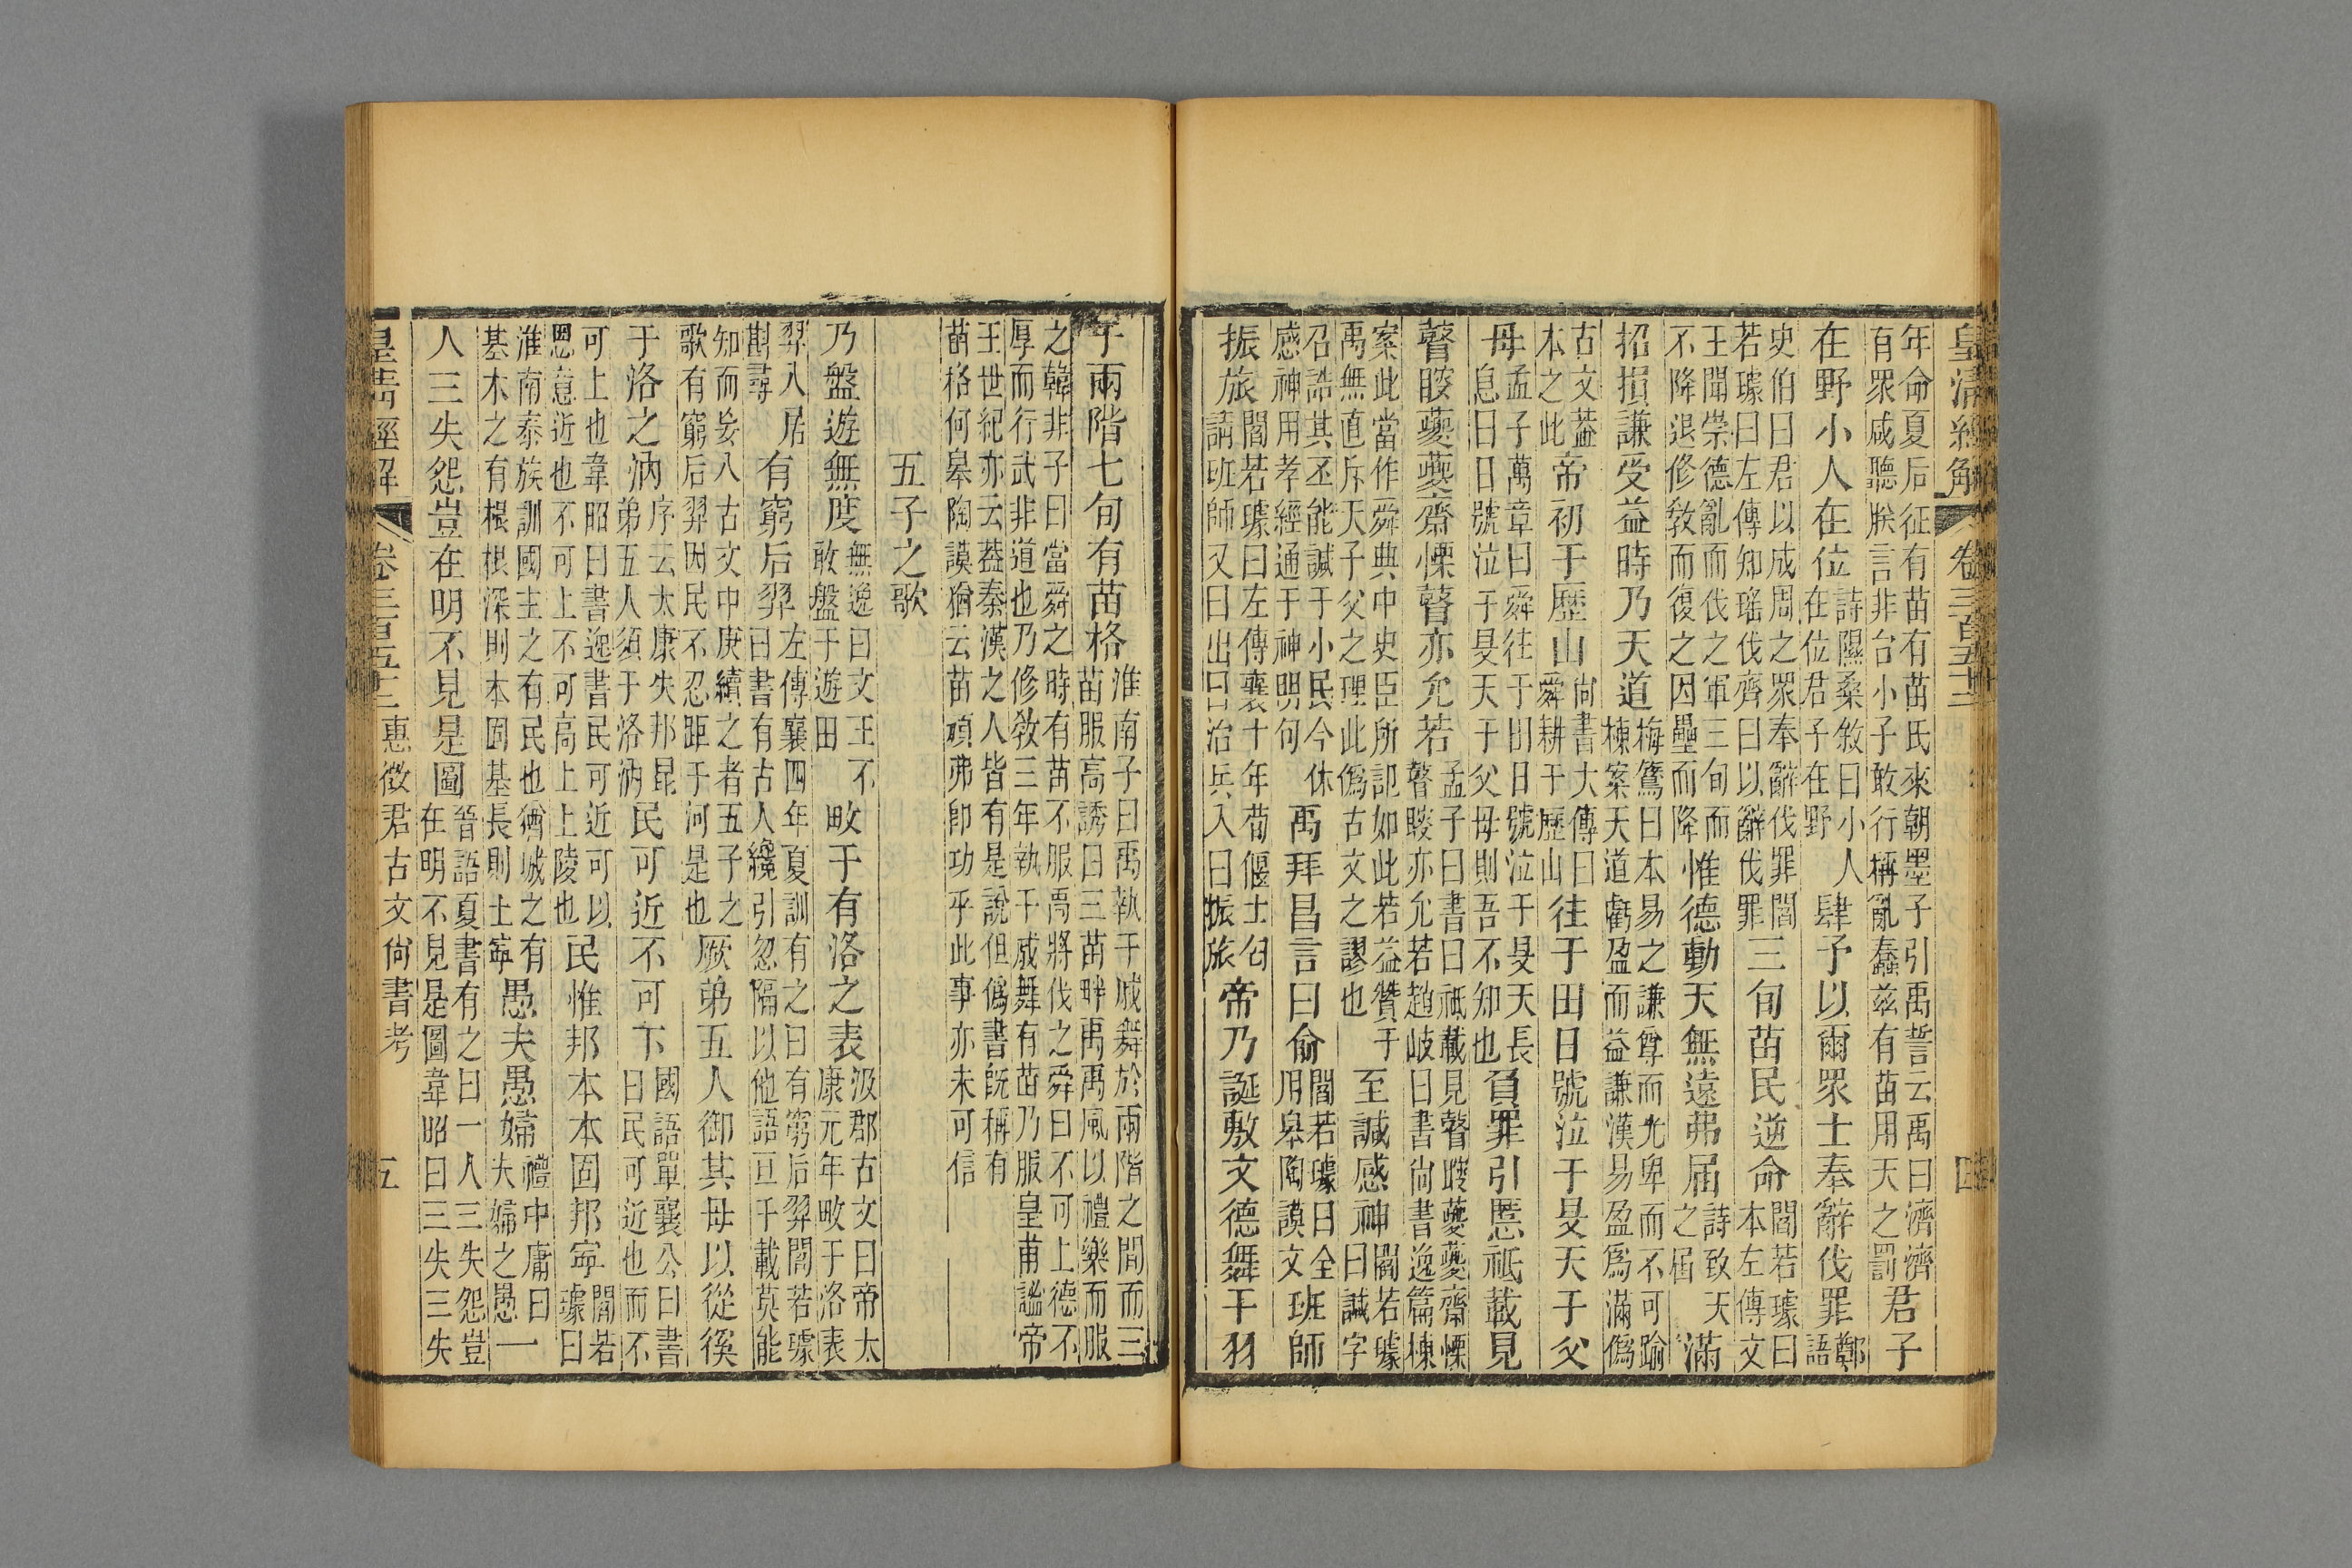 皇清經解 卷三百五十二 四
年命夏后征有苗有苗氏來朝墨子引禹誓云禹曰濟濟
有眾咸聽朕言非台小子敢行稱亂蠢茲有苗用天之罰
君子
在野小人在位
詩隰桑敘曰小人
在位君子在野
肆予以爾眾士奉辭伐罪
鄭
語
史伯曰君以成周之眾奉辭伐罪閻
若璩曰左傳知瑤伐齊曰以辭伐罪
三旬苗民逆命
閻若璩曰
本左傳文
王聞崇德亂而伐之軍三旬而
不降退修敎而復之因壘而降
惟德動天無遠弗屆
詩致天
之屆
滿
招損謙受益時乃天道
梅鷟曰本易之謙尊而光卑而不可踰
棟案天道虧盈而益謙漢易盈爲滿偽
古文葢
本之此
帝初于歷山
尙書大傳曰
舜耕于歷山
往于田日號泣于旻天于父
母
孟子萬章曰舜往于田日號泣于旻天長
息曰日號泣于旻天于父母則吾不知也
負罪引慝祗載見
瞽瞍夔夔齋慄瞽亦允若
孟子曰書曰祗載見瞽瞍夔夔齋慄
瞽瞍亦允若趙岐曰書尙書逸篇棟
案此當作舜典中史臣所記如此若益贊于
禹無直斥天子父之理此僞古文之謬也
至諴感神
閻若璩
曰諴字
召誥其丕能諴于小民今休
感神用孝經通于神明句
禹拜昌言曰俞
閻若璩曰全
用皋陶謨文
班師
振旅
閻若璩曰左傳襄十年荀偃士匄
請班師又曰出曰治兵入曰振旅
帝乃誕敷文德舞干羽
于兩階七旬有苗格
淮南子曰禹執干戚舞於兩階之間而三
苗服高誘曰三苗畔禹禹風以禮樂而服
之韓非子曰當舜之時有苗不服禹將伐之舜曰不可上德不
厚而行武非道也乃修敎三年執干戚舞有苗乃服皇甫謐帝
王世紀亦云葢秦漢之人皆有是說但僞書旣稱有
苗格何皋陶謨猶云苗頑弗卽功乎此事亦未可信
五子之歌
乃盤遊無度
無逸曰文王不
敢盤于遊田
畋于有洛之表
汲郡古文曰帝太
康元年畋于洛表
羿入居
斟尋
有窮后羿
左傳襄四年夏訓有之曰有窮后羿閻若璩
曰書有古人纔引忽隔以他語亘千載莫能
知而妄入古文中庚續之者五子之
歌有窮后羿因民不忍距于河是也
厥弟五人御其母以從徯
于洛之汭
序云太康失邦昆
弟五人須于洛汭
民可近不可下
國語單襄公曰書
曰民可近也而不
可上也韋昭曰書逸書民可近可以
恩意近也不可上不可高上上陵也
民惟邦本本固邦寧
閻若
璩曰
淮南泰族訓國主之有民也猶城之有
基木之有根根深則本固基長則土寧
愚夫愚婦
禮中庸曰
夫婦之愚
一
人三失怨豈在明不見是圖
晉語夏書有之曰一人三失怨豈
在明不見是圖韋昭曰三失三失
皇清經解 卷三百五十二 惠徵君古文尙書考 五